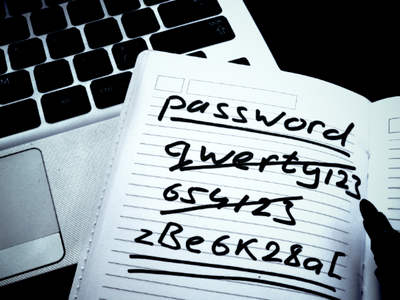 password
qwerty123
654123
zBe6K28a[